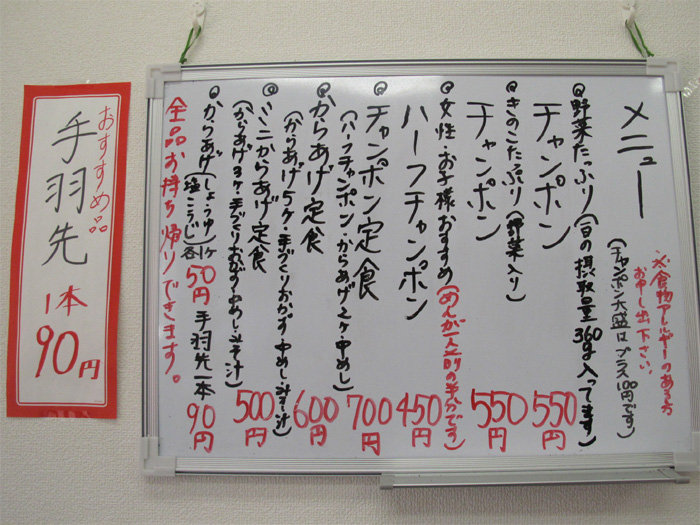 メニュー
※食物アレルギーのある方
お申し出下さい。
(チャンポン大盛はプラス100円です)
◎野菜たっぷり(1日の摂取量360g入ってます)
チャンポン 550円
◎きのこたぷり(野菜入り)
チャンポン 550円
◎女性・お子様おすすめ(めんが一人前の半分です)
ハーフチャンポン 450円
◎チャンポン定食 700円
(ハーフチャンポン・からあげ2ヶ・中めし)
◎からあげ定食 600円
(からあげ5ヶ・手づくりおかず・中めし・みそ汁)
◎ミニからあげ定食 500円
(からあげ3ヶ・手づくりおかず・中めし・みそ汁)
◎からあげ(しょうゆ 塩こうじ)各1ヶ 50円 手羽先一本 90円
全品お持ち帰りできます。
おすすめ品
手羽先
1本
90円